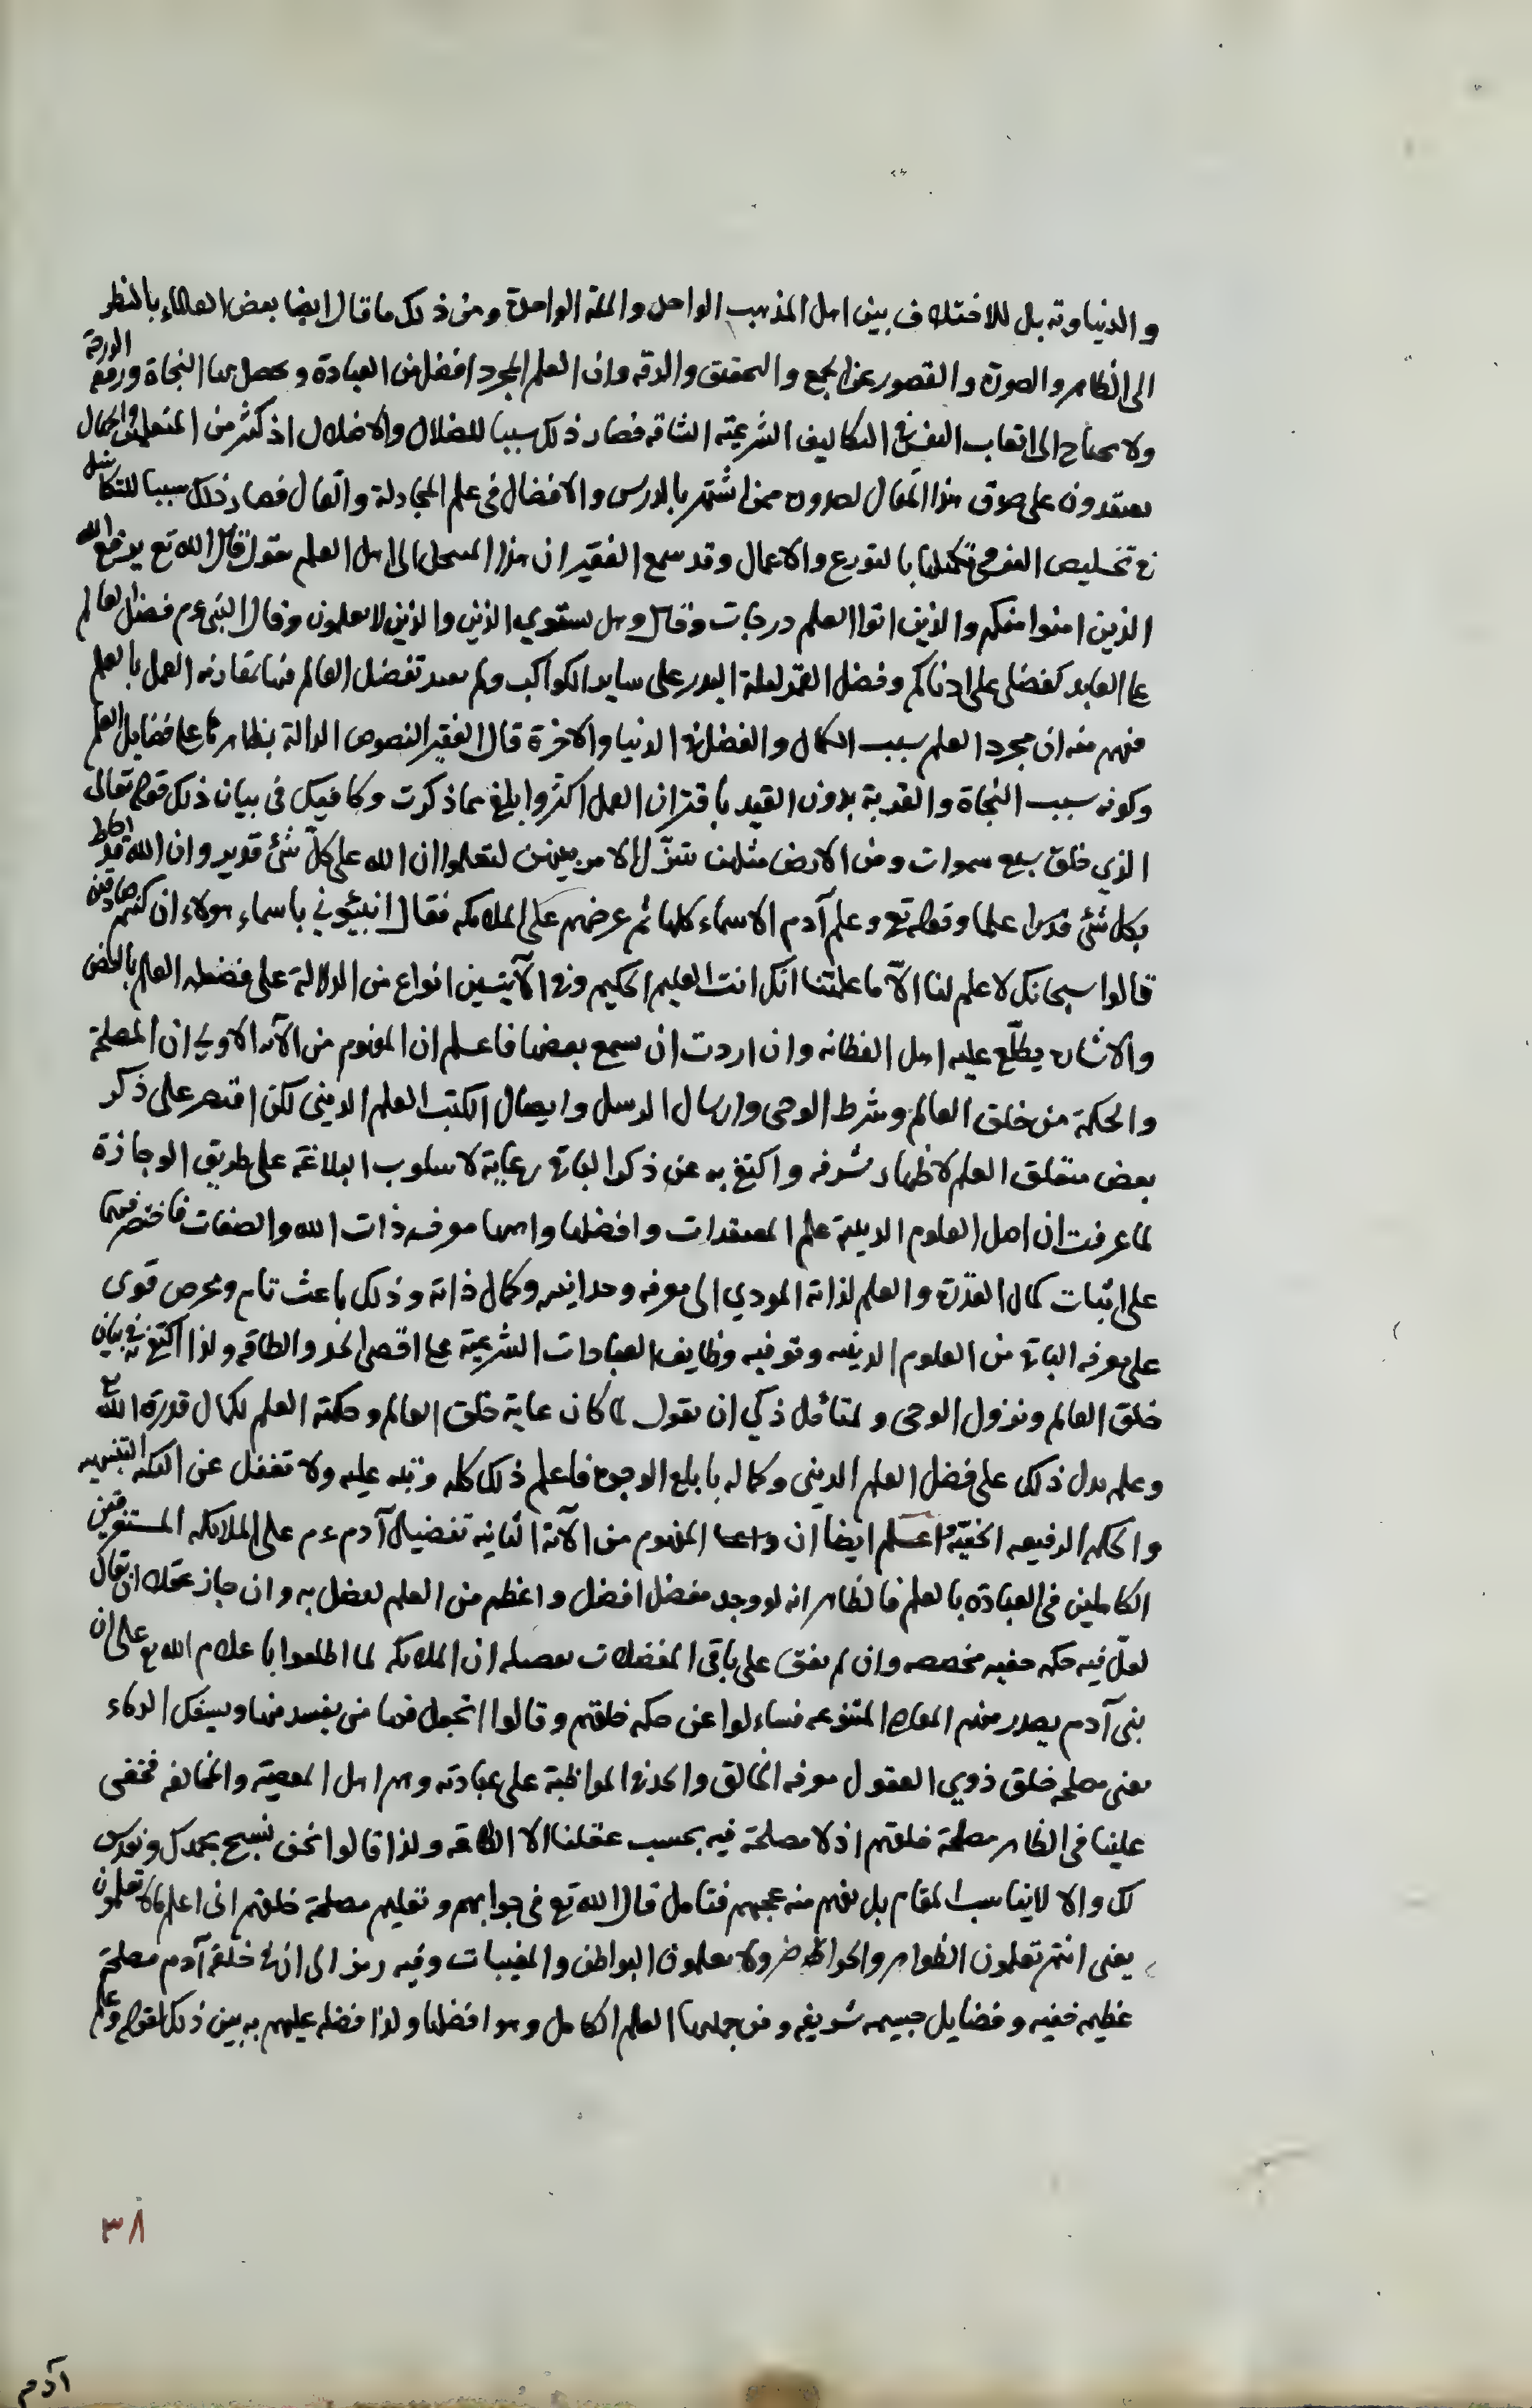 والدنياوته بل للاختلاف بين اهل المذهب الواحد والملة الواحدة ومن ذلك ما قال ايضا بعض العلماء بالنظر
الى الظاهر والصورة والقصور عن الجمع والتحقيق والدقه وان العلم المجرد افضل من العبادة ويحصل بها النجاة ورفعة الدرجة
ولا يحتاج الى اتعاب النفس في التكاليف الشرعية الشاقه فصار ذلك سببا للضلال والاضلال اذ كثير من المتعلمين والجهال
يعتقدون على صدق هذا المقال لصدوره ممن اشتهر بالدرس والافضال في علم المجادلة والقال فصار ذلك سببا للتكاسل
في تخليص النفوس وتكميلها بالتورع والاعمال وقد سمع الفقير ان هذا الى اهل العلم يقول قال الله تع يرفع الله
الذين امنوا منكم والذين اتوا العلم درجات وقال وهل يستوي الذين والذين لا يعلمون وقال النبي ءم فضل العالم
على العابد كفضلي على ادناكم وفضل القمر ليلة البدر على ساير الكواكب ولم يقيد تفضيل العالم فيها بمقارنه العمل بالعلم
فيفهم منه ان مجرد العلم سبب الكمال والفضل في الدنيا والاخرة قال الفقير النصوص الدالة بظاهرها على فضايل العلم
وكونه سبب النجاة والقربة بدون القيد باقتران العمل اكثر وابلغ مما ذكرت وكافيك في بيان ذلك قوله تعالى
الذي خلق سبع سموات ومن الارض مثلهن يتنزّل الامر بينهن لتعلموا ان الله على كلّ شئ قدير وان الله قد احاط
بكل شئ علما وقوله تع وعلم آدم الاسماء كلها ثم عرضهم على الملائكه فقال انبئوني باسماء هولاء ان كنتم صادقين
قالوا سبحانك لا علم لنا الّا ما علمتنا انّك انت العليم الحكيم وفي الآيتين انواع من الدلالة على فضيله العلم
والاشاره يطّلع عليه اهل الفطانه وان اردت ان تسمع بعضها فاعلم ان المفهوم من الآيه الاولى ان المصلحة
والحكمة من خلق العالم وشرط الوحى وارسال الرسل وايصال الكتب العلم الدينى لكن اقتصر على ذكر
بعض متعلق العلم لاظهار شرفه واكتفى به عن ذكر الباقى رعاية لاسلوب البلاغة على طريق الوجازة
لما عرفت ان اصل العلوم الدينية علم المعتقدات وافضلها واهمها معرفه ذات الله والصفات فاختصر فيهما
على اثبات كمال القدرة والعلم لذاته المودي الى معرفه وحدانيته وكمال ذاته وذلك باعث تام ومحرص قوى
على معرفه الباقى من العلوم الدينيه وتوفيه وظايف العبادات الشرعية على اقصى الحد والطاقه ولذا اكتفى به في بيان
خلق العالم ونزول الوحى ولمتأمل ذكي ان يقول لما كان غاية خلق العالم وحكمته العلم لكمال قدرة الله تع
وعلمه يدل ذلك على فضل العلم الدينى وكماله بابلغ الوجوه فاعلم ذلك كله وتنبه عليه ولا تغفل عن النكته النفيسه
والحكمه الدقيقه الخفيّه واعلم ايضا ان المفهوم من الآية الثانيه تفضيل آدم ءم على الملائكه المستغرقين
الكاملين في العبادة بالعلم فالظاهر انه لو وجد مفضل افضل واعظم من العلم لفضل به وان جاز عقلا ان يقال
لعلّ فيه حكمه خفيه مخصصه وان لم يفق على باقى المفضلات تفصيله ان الملائكه لما اطلعوا باعلام الله تع على ان
بنى آدم يصدر منهم المتنوعه فساءلوا عن حكمه خلقتهم وقالوا اتجعل فيها من يفسد فيها ويسفك الدماء
يعنى مصلحه خلق ذوي العقول معرفه الخالق والمواظبة على عبادته وهم اهل المعصيته والمخالفه فخفى
علينا في الظاهر مصلحة خلقتهم اذ لا مصلحة فيه بحسب عقلنا الا الطاعه ولذا قالوا نحن نسبح بحمدك ونقدس
لك والا لا يناسب المقام بل يفهم منه عجبهم فتامل قال الله تع في جوابهم وتعليم مصلحة خلقتهم انى اعلم ما لا تعلمون
يعنى انتم تعلمون الظواهر والحواضر ولا تعلمون البواطن والمغيبات وفيه رمز الى ان في خلقة آدم مصلحة
عظيمه خفيه وفضايل جسيمه شريفه ومن جملتها العلم الكامل وهو افضلها ولذا فضله عليهم به بين ذلك بقوله وعلم
٣٨
آدم